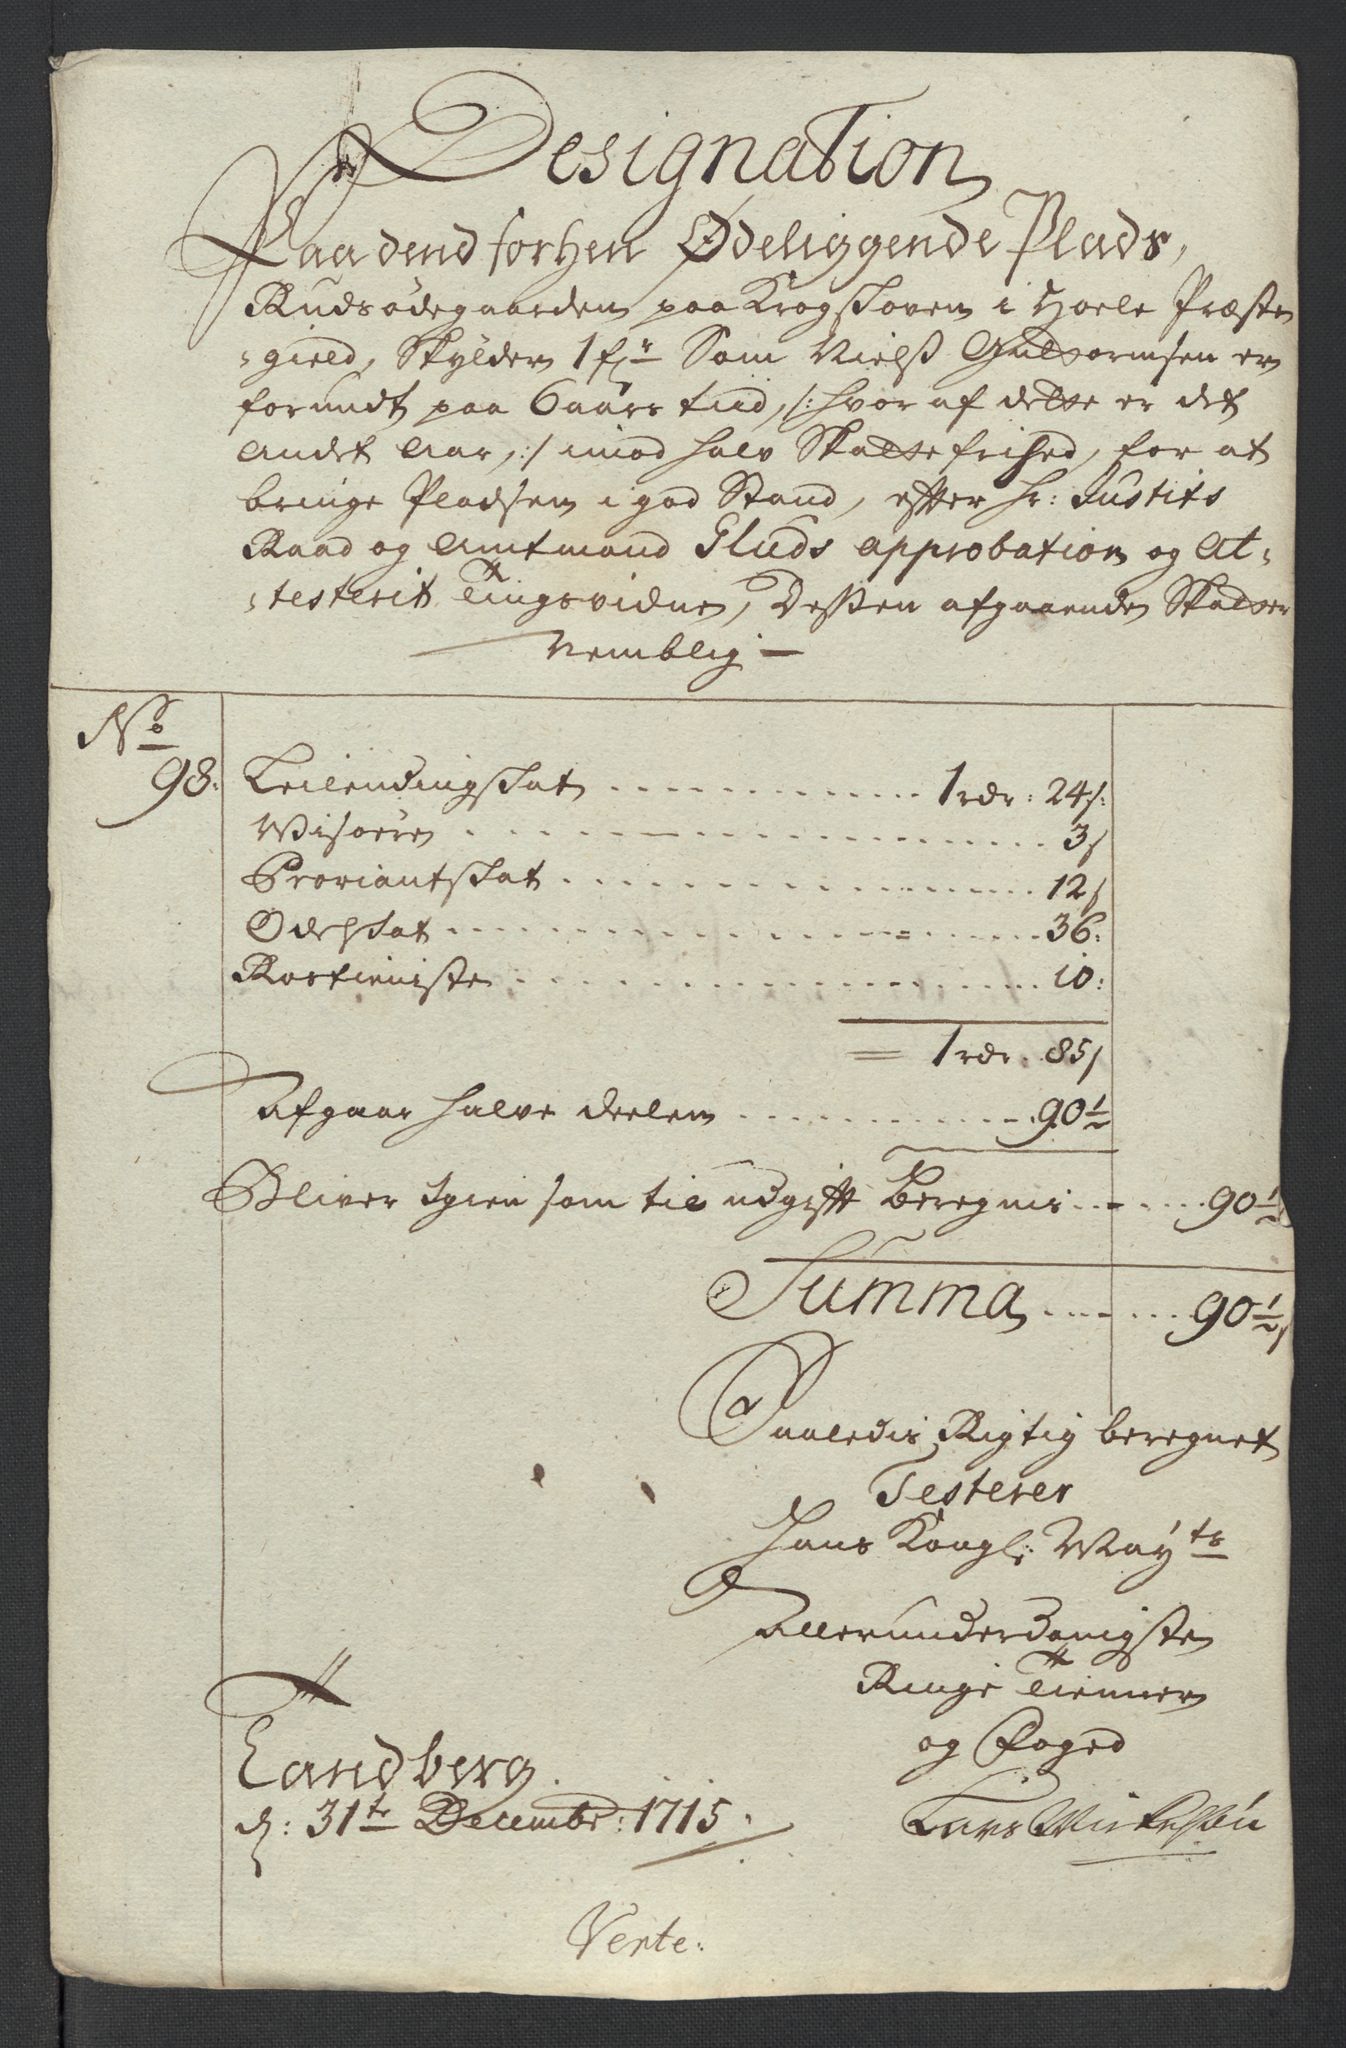 Designation
Paa dend forhen Ødeliggende Plads,
Rudsødegaarden paa Krogskoven i Hoele Præste
gield, Skylder 1 fr Som Nielß Guttormsen er
forundt paa 6 aars tiid, /: hvor af dette er det
Andet Aar, :/ imod halv Skattefrihed, for at
bringe Pladsen i god Stand, efter Hr: Justits
Raad og Amtmand Sluds approbation og At-
testerit Tingsvidne, Deßen afgaaende Skatter
Nemblig —
No
98: Leilendingskat 1 rdr: 24 s:
Visøere 3 s
Proviantskat 12 s
Odelskat 36:
Rostieniste 10:
= 1 rdr. 85 s
Afgaar halve deelen 90½
Bliver igien som til udgifft Beregnis 90½
Summa 90½ s
Saaledis Rigtig beregnet
Testerer
Hans Kongl: Mayts
Allerunderdanigste
Ringe Tienner
og Foged
Landberg
d: 31te Decembr: 1715.
Verte: